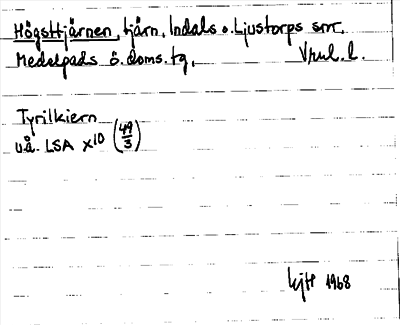 Högsttjärnen, tjärn, Indals o. Ljustorps snr,
Medelpads ö. doms. tg, Vnl. l.
Tyrilkiern
u.å. LSA X10 (49/3)
1968